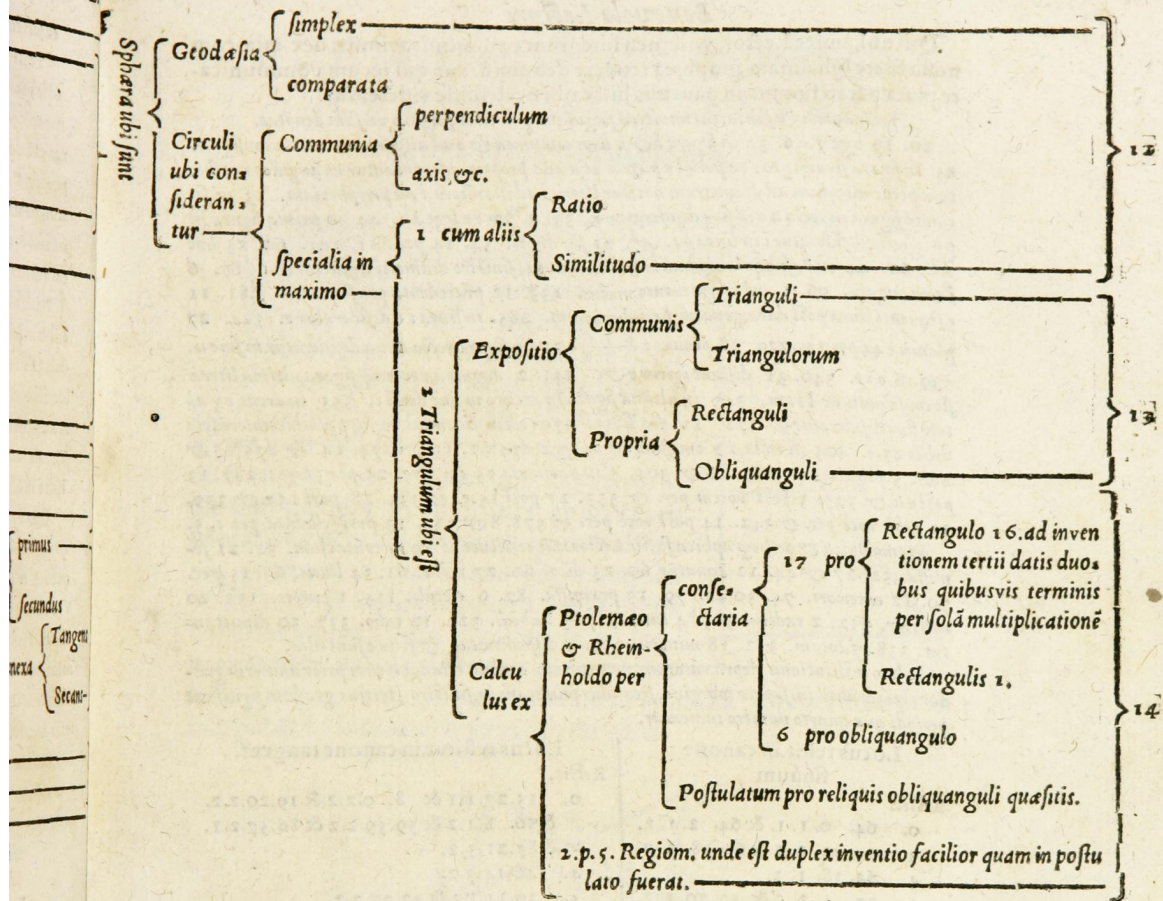 Sphæra ubi ſunt
Geodæſia
ſimplex
comparata
12
Circuli
ubi con⸗
ſideran⸗
tur
Communia
perpendiculum
axis &c.
ſpecialia in
maximo
1 cum aliis
Ratio
Similitudo
2 Triangulum ubi eſt
Expoſitio
Communis
Trianguli
Triangulorum
13
Propria
Rectanguli
Obliquanguli
Calcu
lus ex
Ptolemæo
& Rhein-
holdo per
conſe⸗
ctaria
17 pro
Rectangulo 16. ad inven
tionem tertii datis duo⸗
bus quibusvis terminis
per ſolã multiplicationẽ
Rectangulis 1.
14
6 pro obliquangulo
Poſtulatum pro reliquis obliquanguli quæſitis.
2. p. 5. Regiom. unde eſt duplex inventio facilior quam in poſtu
lato fuerat.
primus
ſecundus
nexa
Tangen
Secan-